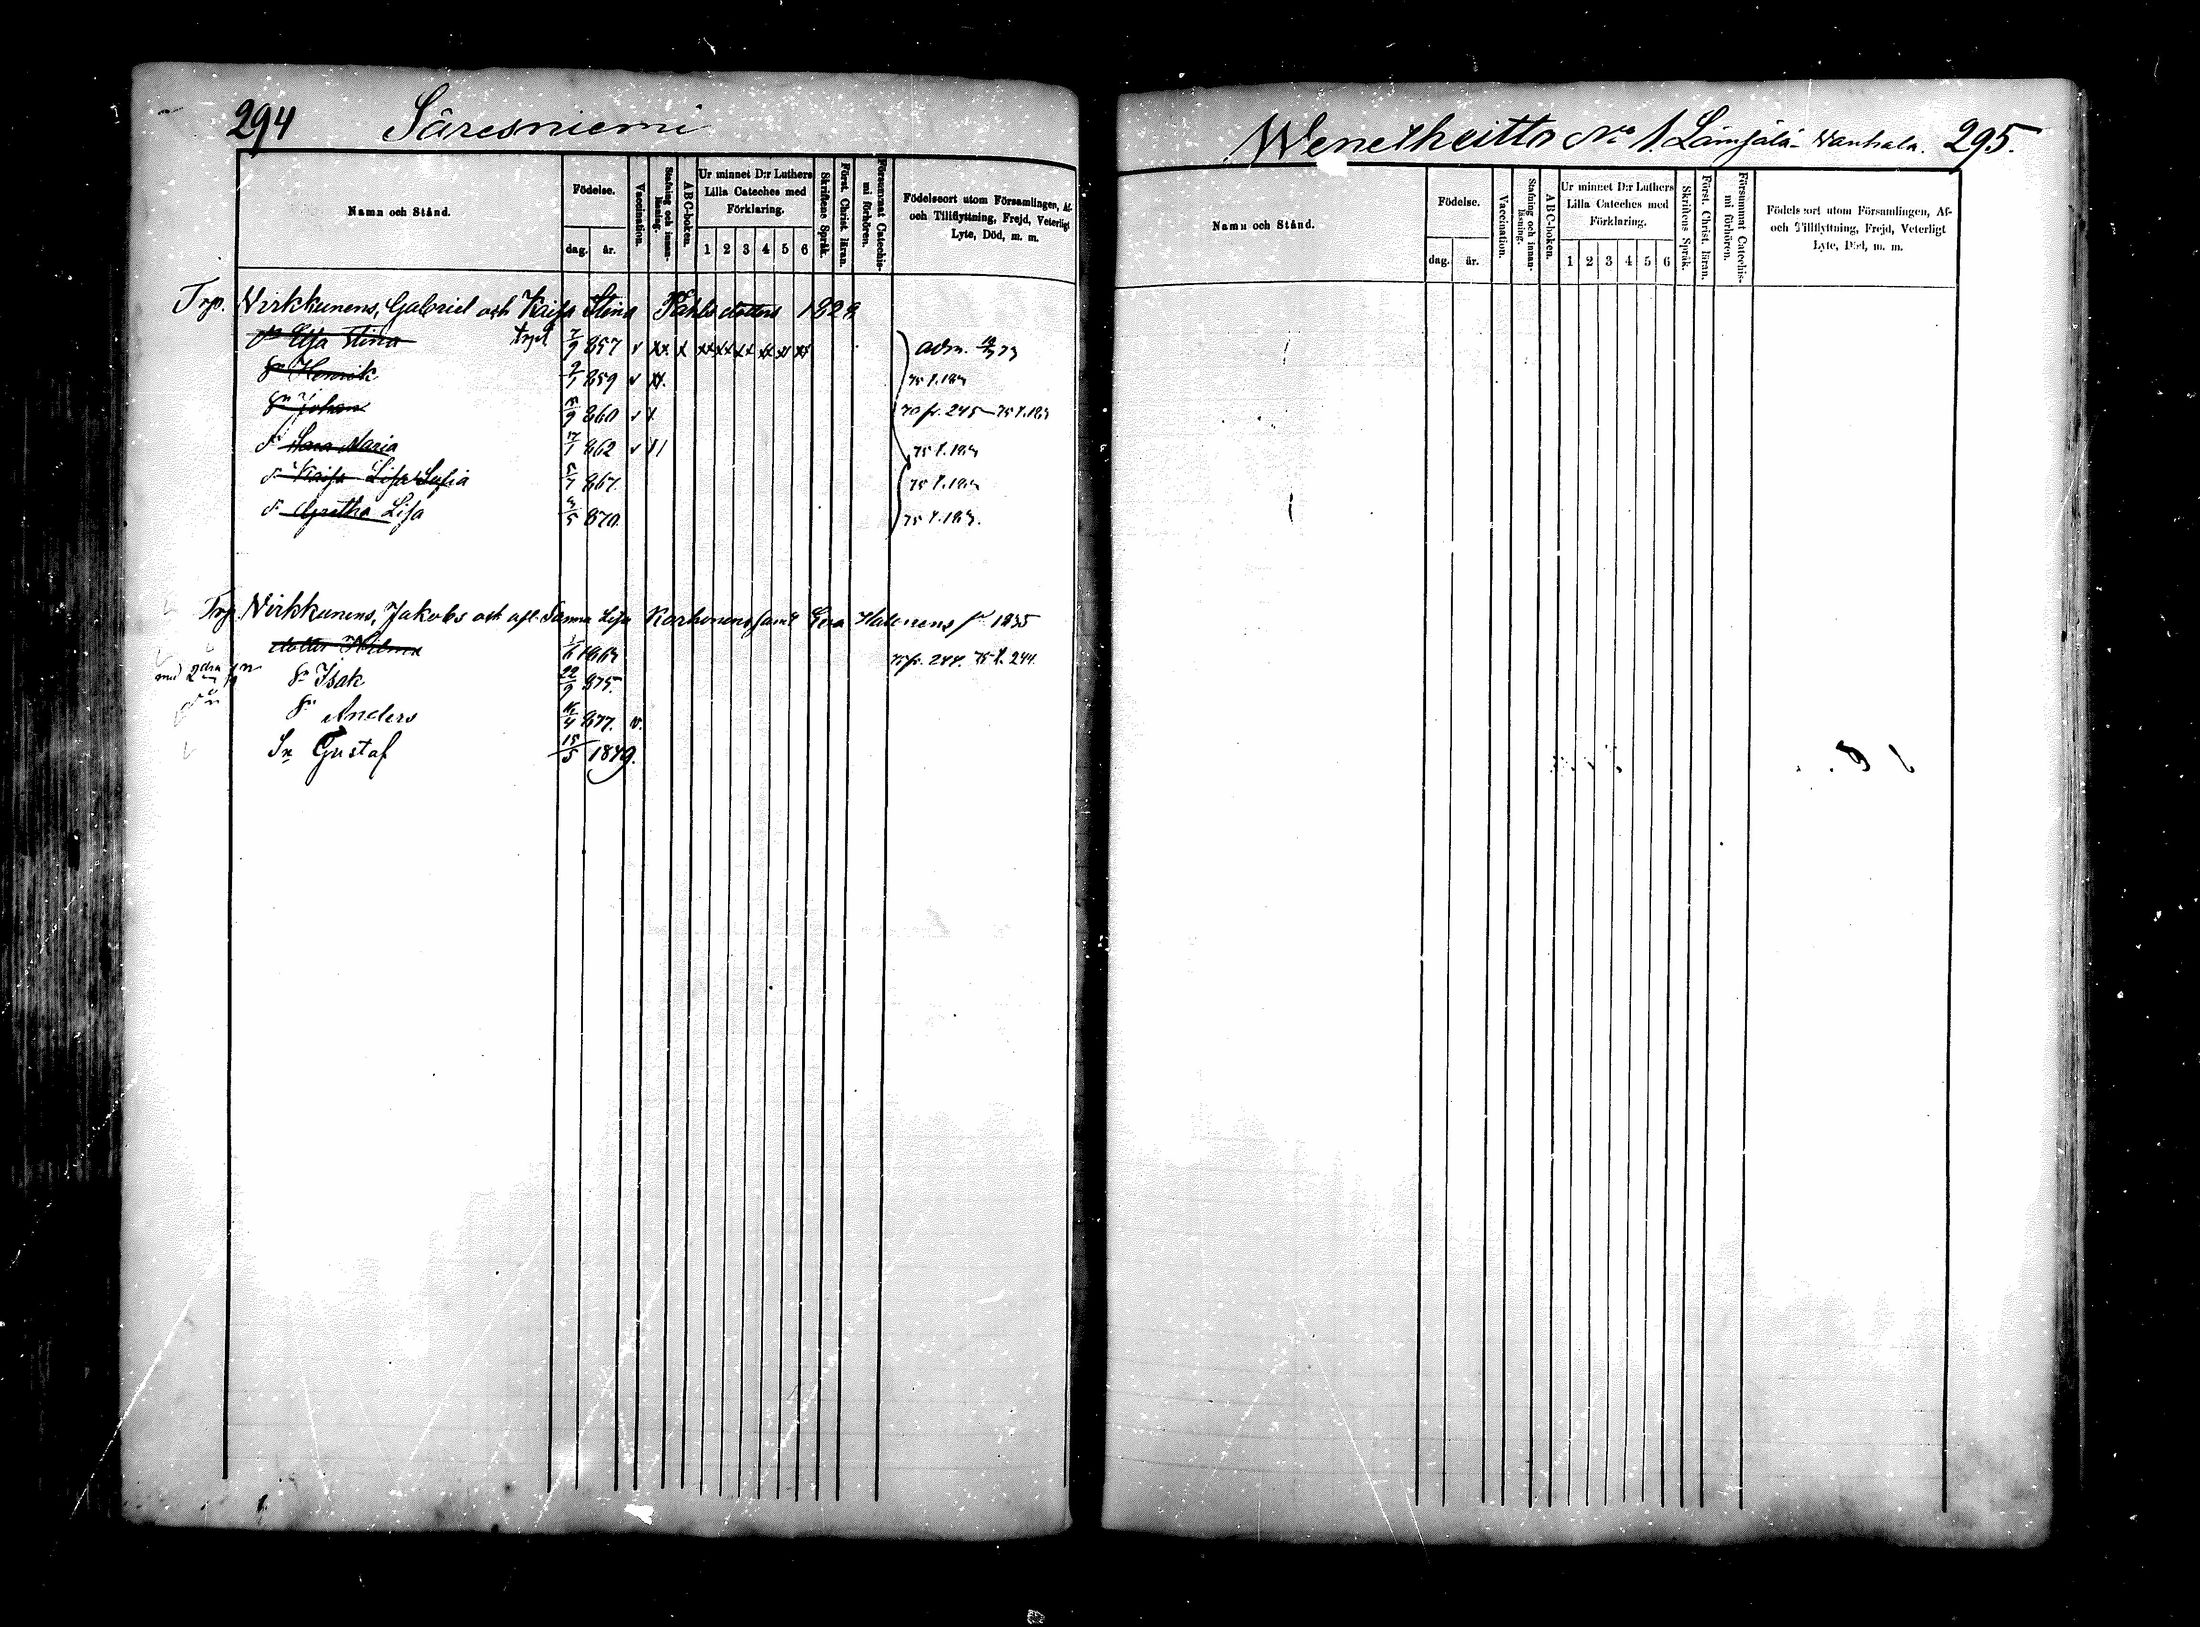 294 Säresniemi
Namn och Stånd.
Födelse.
dag. år.
Vaccination.
Stafning och innan-läsning.
ABC-boken.
Ur minnet D:r Luthers
Lilla Cateches med
Förklaring.
1 2 3 4 5 6
Skriftens Språk.
Först. Christ. läran.
Försummat Catechis-
mi förhören.
Födelseort utom Församlingen, Af-
och Tillflyttning, Frejd, Veterligt
Lyte, Död, m. m.
Trp. Virkkunens, Gabriel och Kaisa Stina Pahls dotters 1829
Stina 7/9 857 adm. 73
Sn Henrik 2/1 859 75 f. 183
Sn Johan 860 70 fr. 245 — 75 f. 183
dr Sara Maria 17/1 862 75 f. 183
dr Kaisa Lisa Sofia 867. 75 f. 183
dr Gretha Lisa 870. 75 f. 183.
Trp. Virkkunens, Jakobs och afl. Sanna Lisa Korhonens samt Eva Halonens 1835
dotter 244. 75 f. 244.
Sn Isak 22/9 875.
Sn Anders 16/4 877. v.
Sn Gustaf 15/5 1879.
Wenetheitto No 1 Lämsälä- Wanhala. 295.
Namn och Stånd.
Födelse.
dag. år.
Vaccination.
Stafning och innan-läsning.
ABC-boken.
Ur minnet D:r Luthers
Lilla Cateches med
Förklaring.
1 2 3 4 5 6
Skriftens Språk.
Först. Christ. läran.
Försummat Catechis-
mi förhören.
Födelseort utom Församlingen, Af-
och Tillflyttning, Frejd, Veterligt
Lyte, Död, m. m.